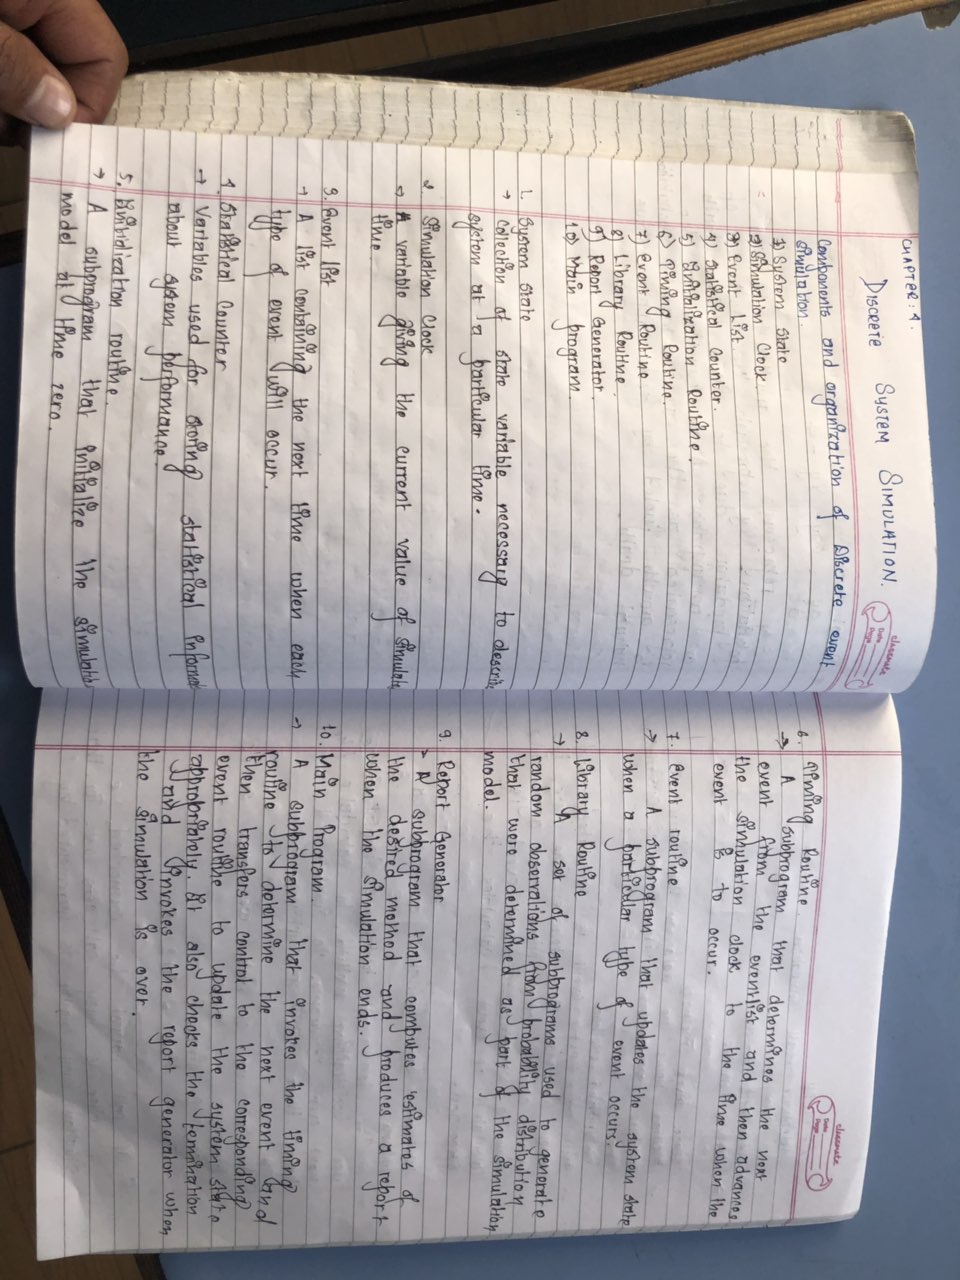 CHAPTER: 4.
DISCRETE SYSTEM SIMULATION.
classmate
Date
Page
Components and organization of Discrete event
simulation
1) System state
2) Simulation clock.
3) Event List.
4) Statistical counter.
5) Initialization Routine.
6) Timing Routine.
7) Event Routine
8) Library Routine.
9) Report Generator.
10) Main program.
1. System state
→ Collection of state variable necessary to describe
system at a particular time.
2. Simulation Clock
→ A variable giving the current value of simulate
time
3. Event list
→ A list containing the next time when each
type of event will occur.
4. Statistical Counter
→ Variables used for storing statistical informat
about system performance.
5. Initialization routine.
→ A subprogram that initialize the simulation
model at time zero.
classmate
Date
Page
6. Timing Routine.
→ A subprogram that determines the next
event from the eventlist and then advances
the simulation clock to the time when the
event is to occur.
7. event routine
→ A subprogram that updates the system state
when a particular type of event occurs.
8. Library Routine
→ A set of subprograms used to generate
random observations from probability distribution
that were determined as part of the simulation
model.
9. Report Generator
→ A subprogram that computes estimates of
the desired mothod and produces a report
when the simulation ends.
10. Main Program.
→ A subprogram that invotes the timing
routine to determine the next event and
then transfers control to the corresponding
event routine to update the system state
appropritaly. It also checks the temination
and invokes the report generator when
the simulation is over.